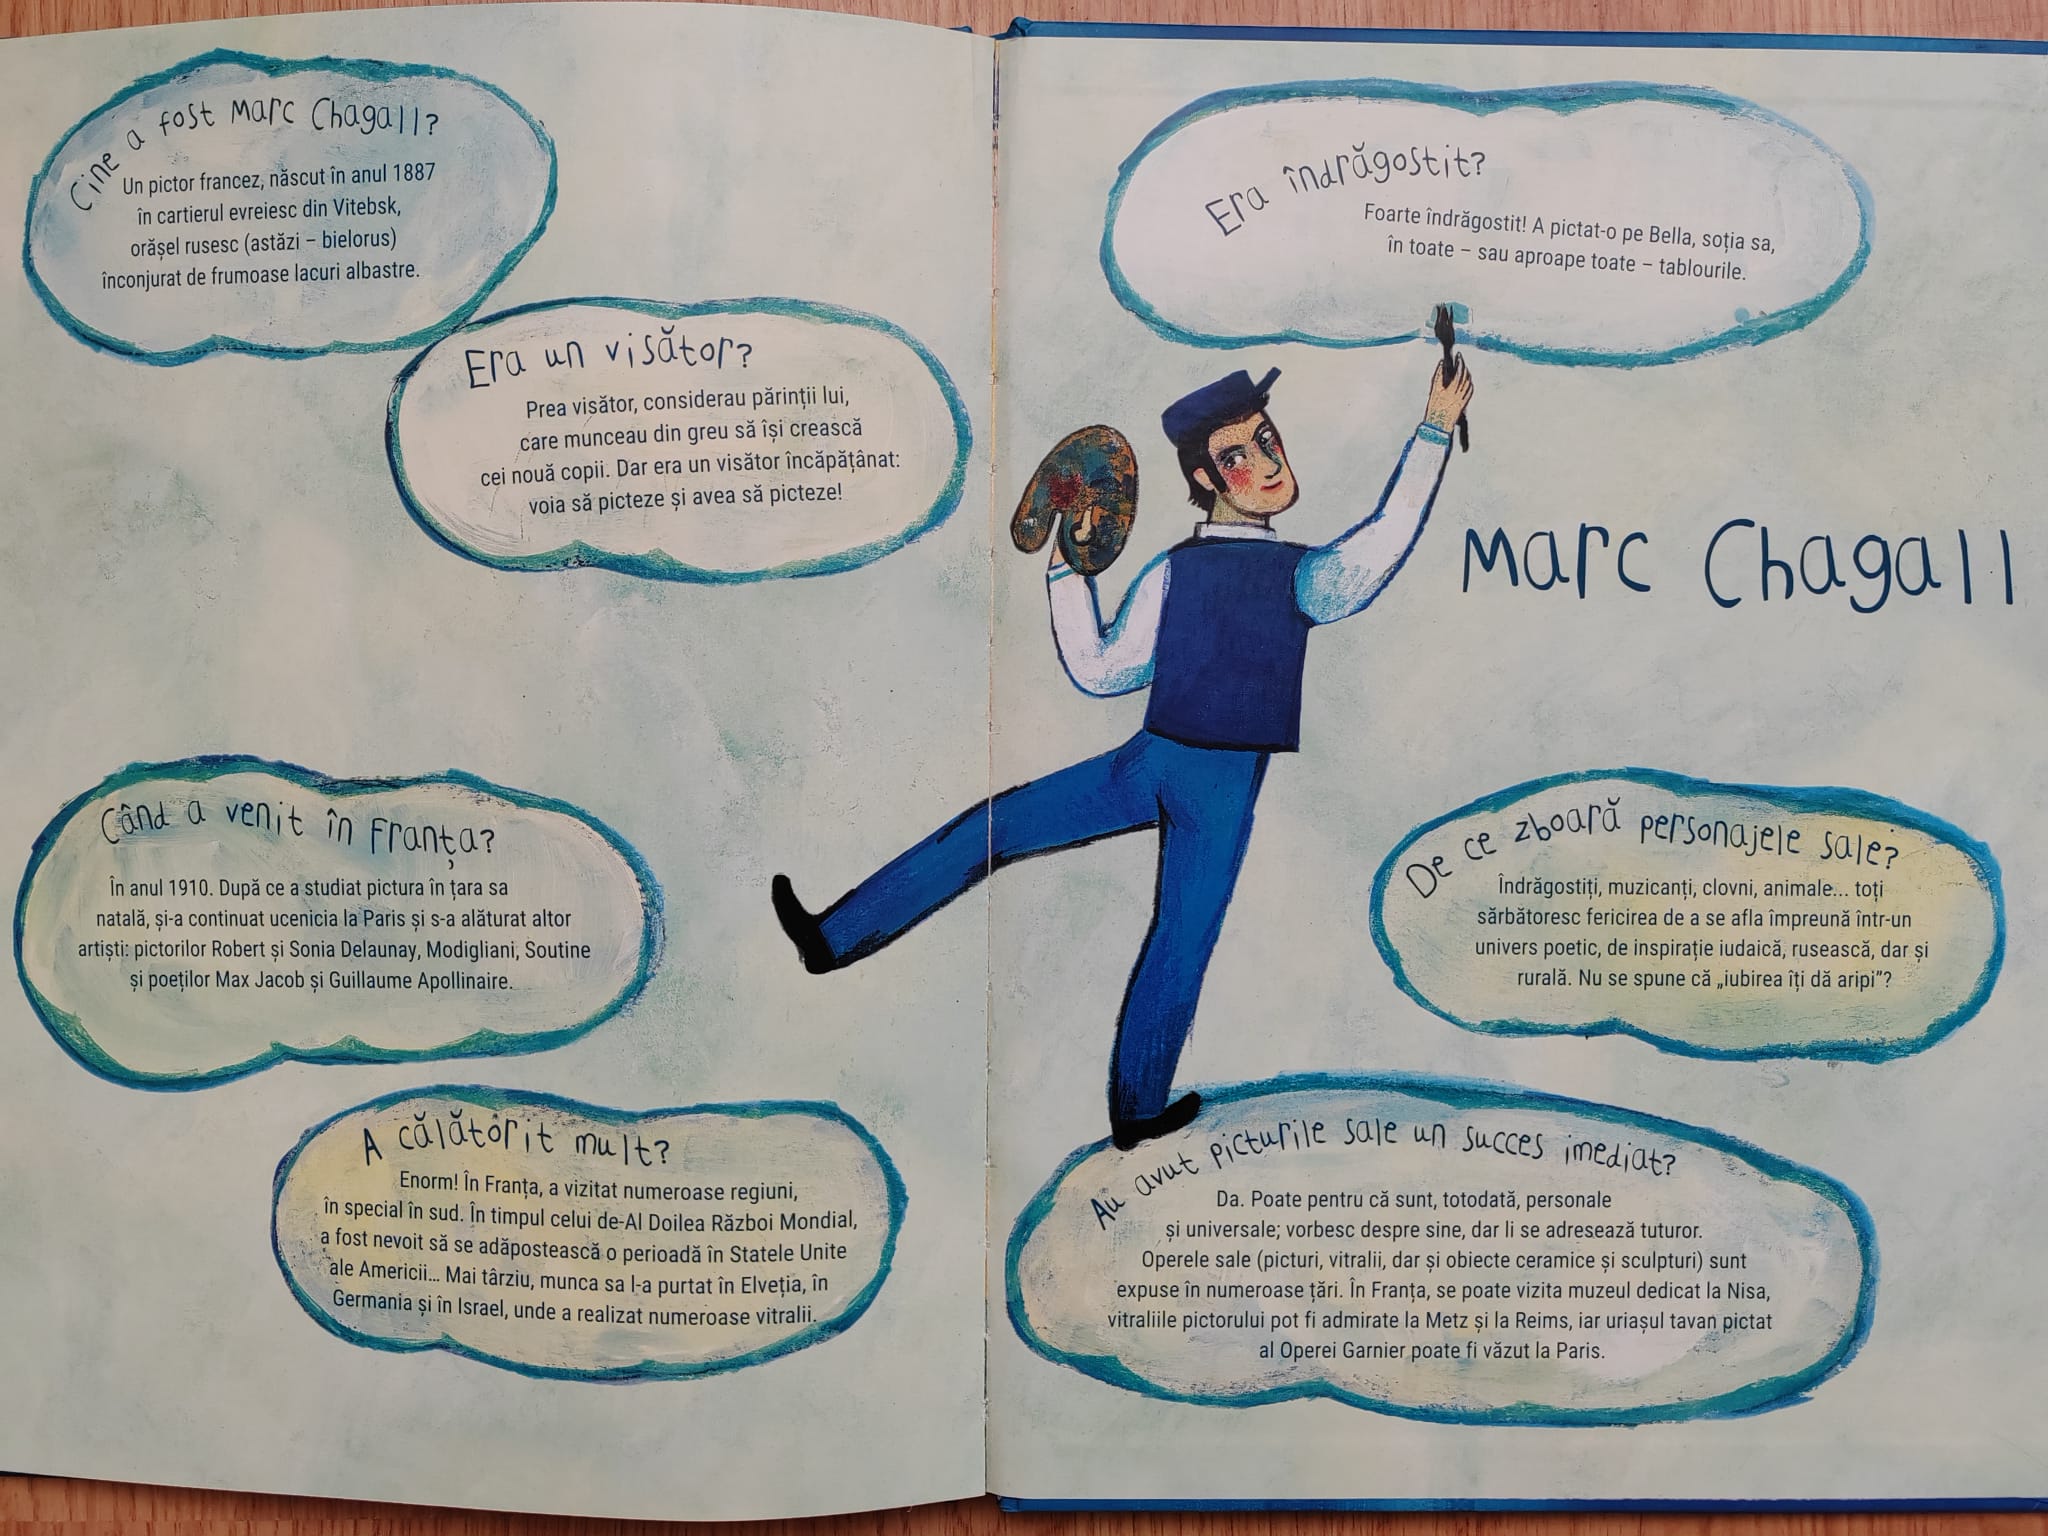 Cine a fost Marc Chagall?
Un pictor francez, născut în anul 1887
în cartierul evreiesc din Vitebsk,
orășel rusesc (astăzi – bielorus)
înconjurat de frumoase lacuri albastre.
Era un visător?
Prea visător, considerau părinții lui,
care munceau din greu să își crească
cei nouă copii. Dar era un visător încăpățânat:
voia să picteze și avea să picteze!
Când a venit în Franța?
În anul 1910. După ce a studiat pictura în țara sa
natală, și-a continuat ucenicia la Paris și s-a alăturat altor
artiști: pictorilor Robert și Sonia Delaunay, Modigliani, Soutine
și poeților Max Jacob și Guillaume Apollinaire.
A călătorit mult?
Enorm! În Franța, a vizitat numeroase regiuni,
în special în sud. În timpul celui de-Al Doilea Război Mondial,
a fost nevoit să se adăpostească o perioadă în Statele Unite
ale Americii... Mai târziu, munca sa l-a purtat în Elveția, în
Germania și în Israel, unde a realizat numeroase vitralii.
Era îndrăgostit?
Foarte îndrăgostit! A pictat-o pe Bella, soția sa,
în toate – sau aproape toate – tablourile.
Marc Chagall
De ce zboară personajele sale?
Îndrăgostiți, muzicanți, clovni, animale... toți
sărbătoresc fericirea de a se afla împreună într-un
univers poetic, de inspirație iudaică, rusească, dar și
rurală. Nu se spune că „iubirea îți dă aripi”?
Au avut picturile sale un succes imediat?
Da. Poate pentru că sunt, totodată, personale
și universale; vorbesc despre sine, dar li se adresează tuturor.
Operele sale (picturi, vitralii, dar și obiecte ceramice și sculpturi) sunt
expuse în numeroase țări. În Franța, se poate vizita muzeul dedicat la Nisa,
vitraliile pictorului pot fi admirate la Metz și la Reims, iar uriașul tavan pictat
al Operei Garnier poate fi văzut la Paris.